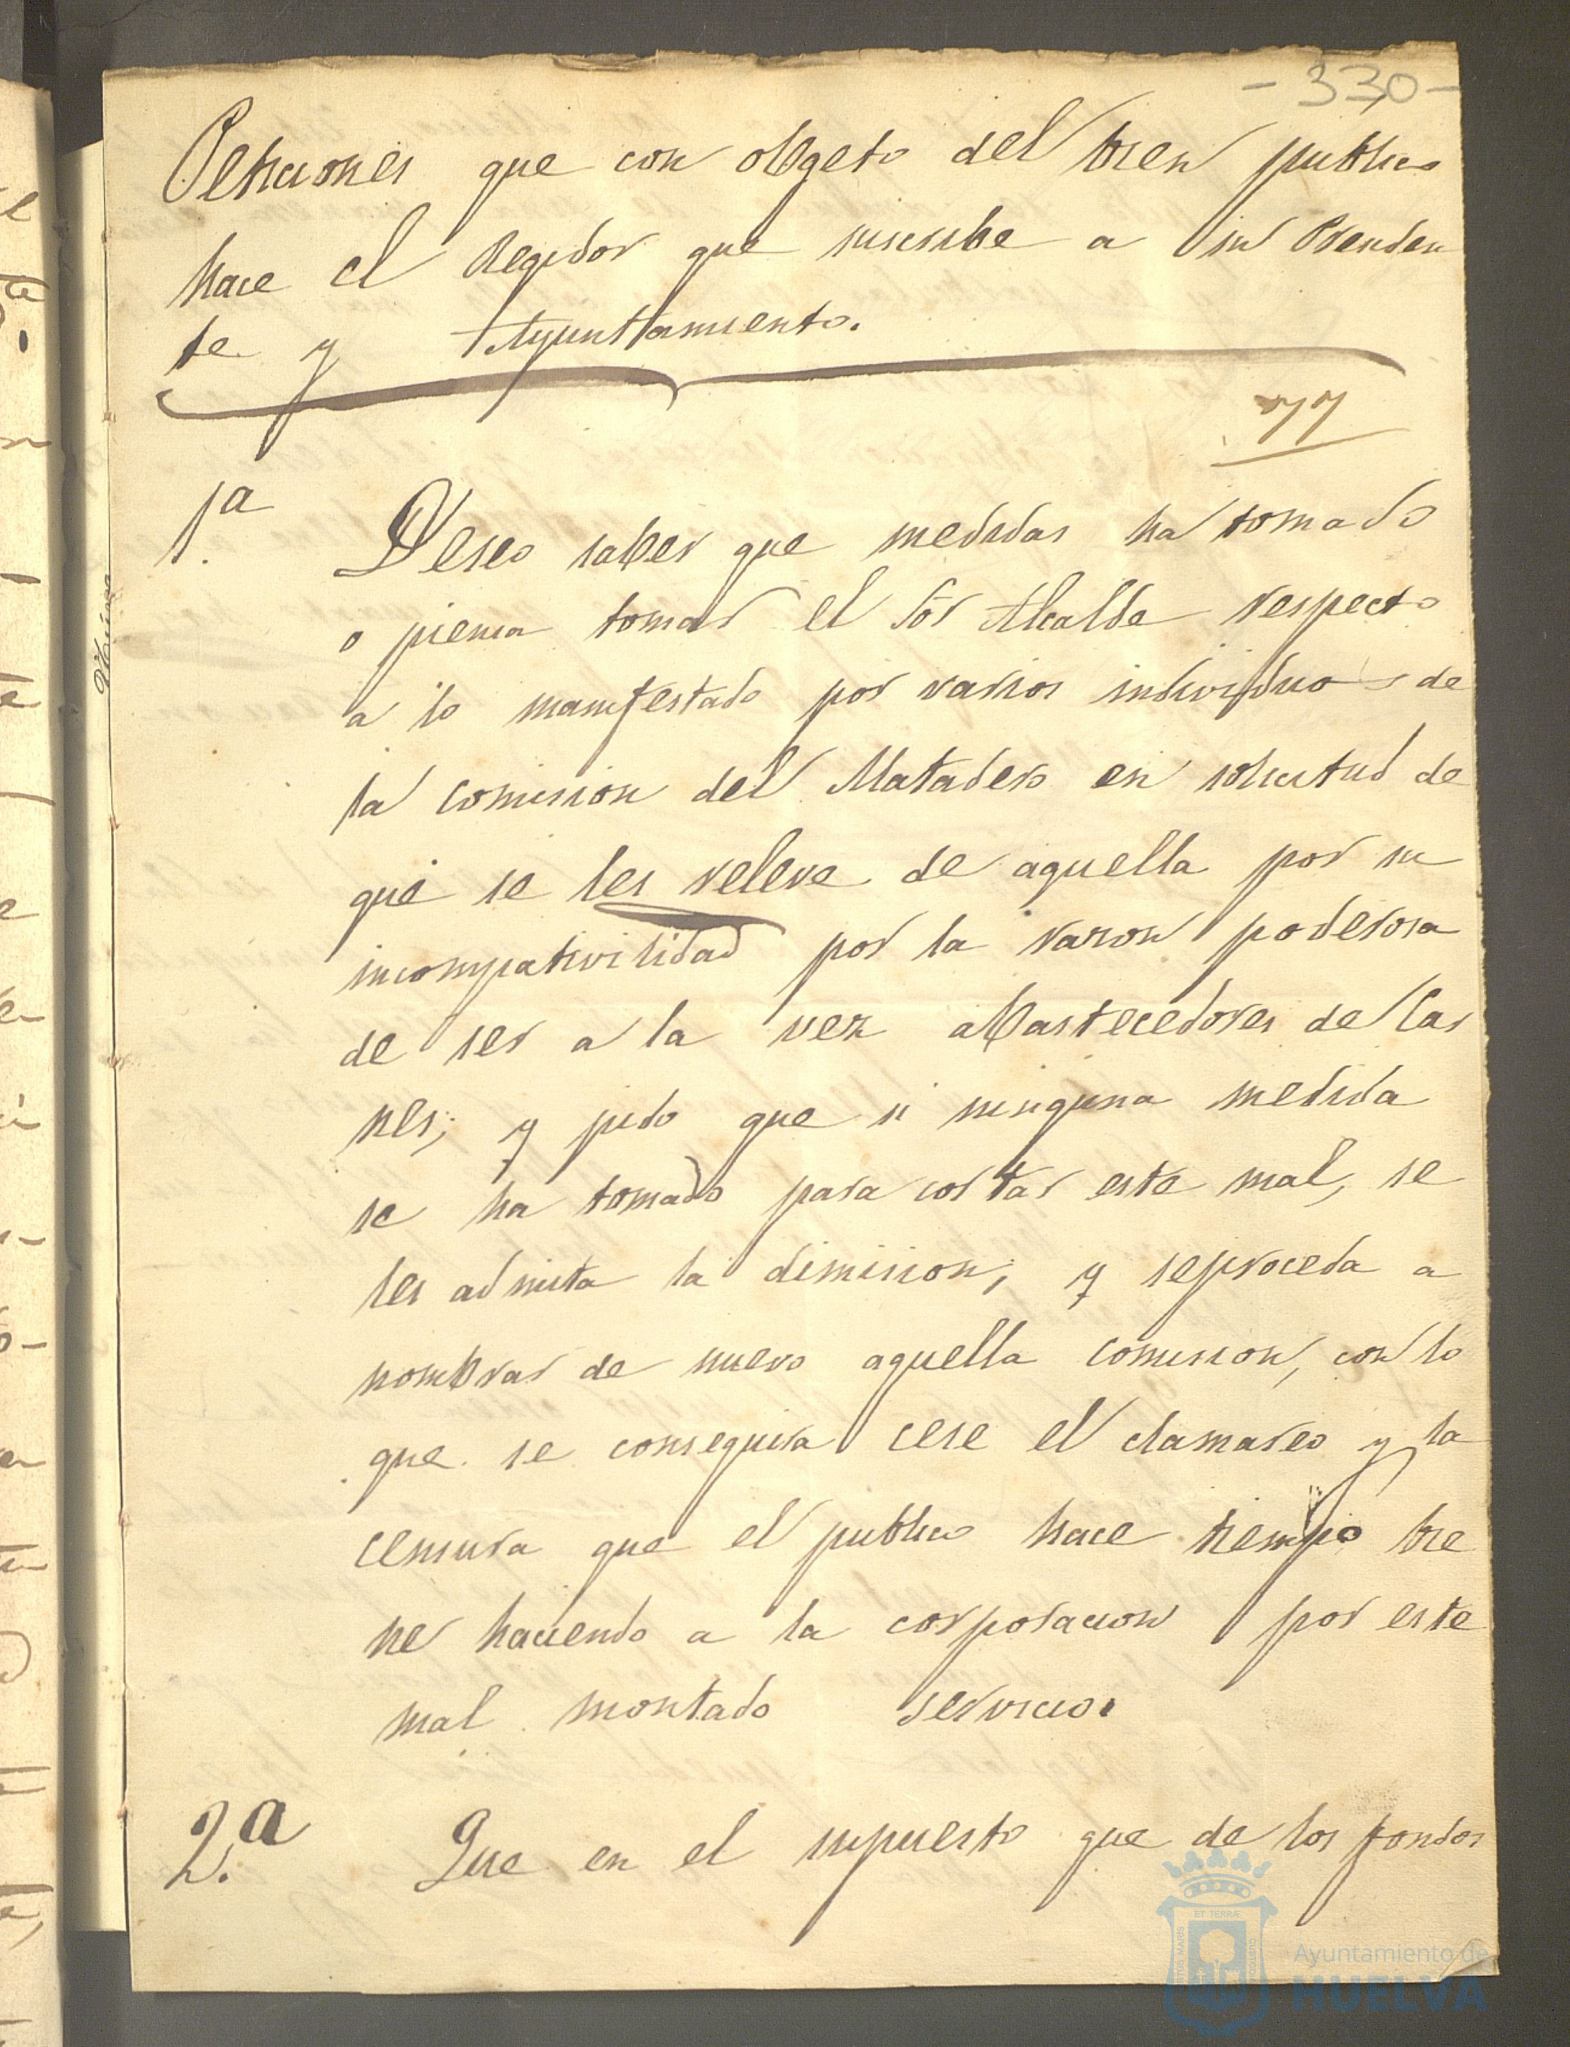 - 330 -
Peticiones que con obgeto del bien publico
hace el Regidor que suscribe a su Presiden
te y Ayuntamiento.
77
1ª. Deseo saber que medidas ha tomado
o piensa tomar el Sor Alcalde respecto
a lo manifestado por varios individuos de
la comision del Matadero en solicitud de
que se les releve de aquella por su
incompativilidad por la razon poderosa
de ser a la vez abastecedores de Car
nes; y pido que si ninguna medida
se ha tomado para cortar este mal, se
les admita la dimision; y seproceda a
nombrar de nuevo aquella comision, con lo
que se conseguira cese el clamareo y la
censura que el publico hace tiempo tie
ne haciendo a la corporacion por este
mal montado servicio.
2.ª Que en el supuesto que de los fondos
ET TERRÆ
Ayuntamiento de
HUELVA